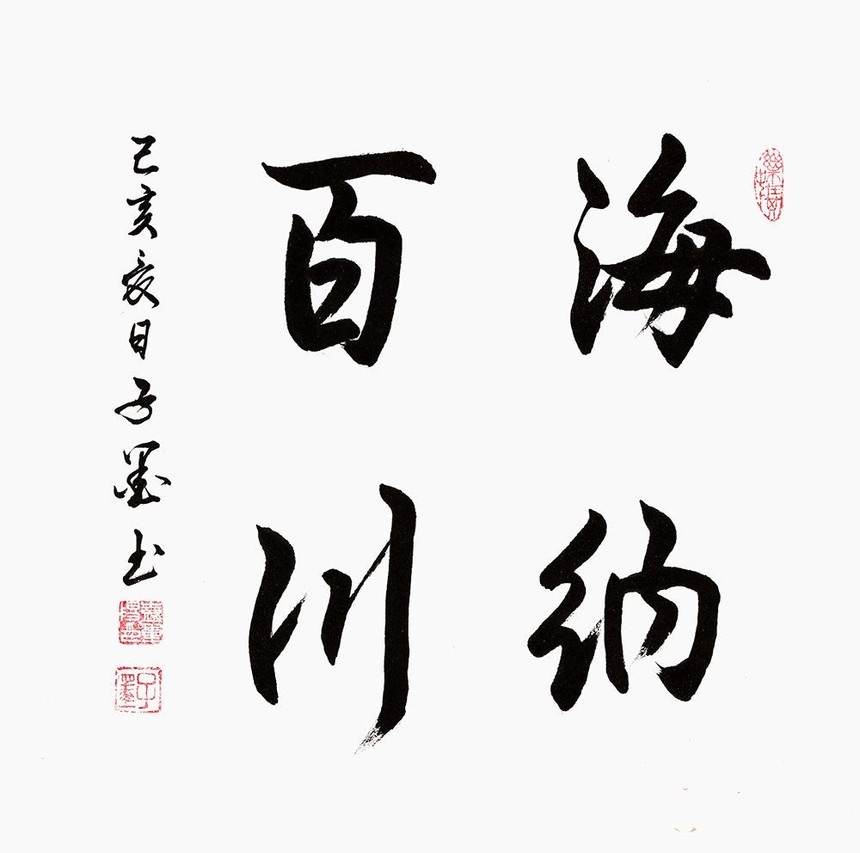 海纳
百川
己亥夏日子墨书